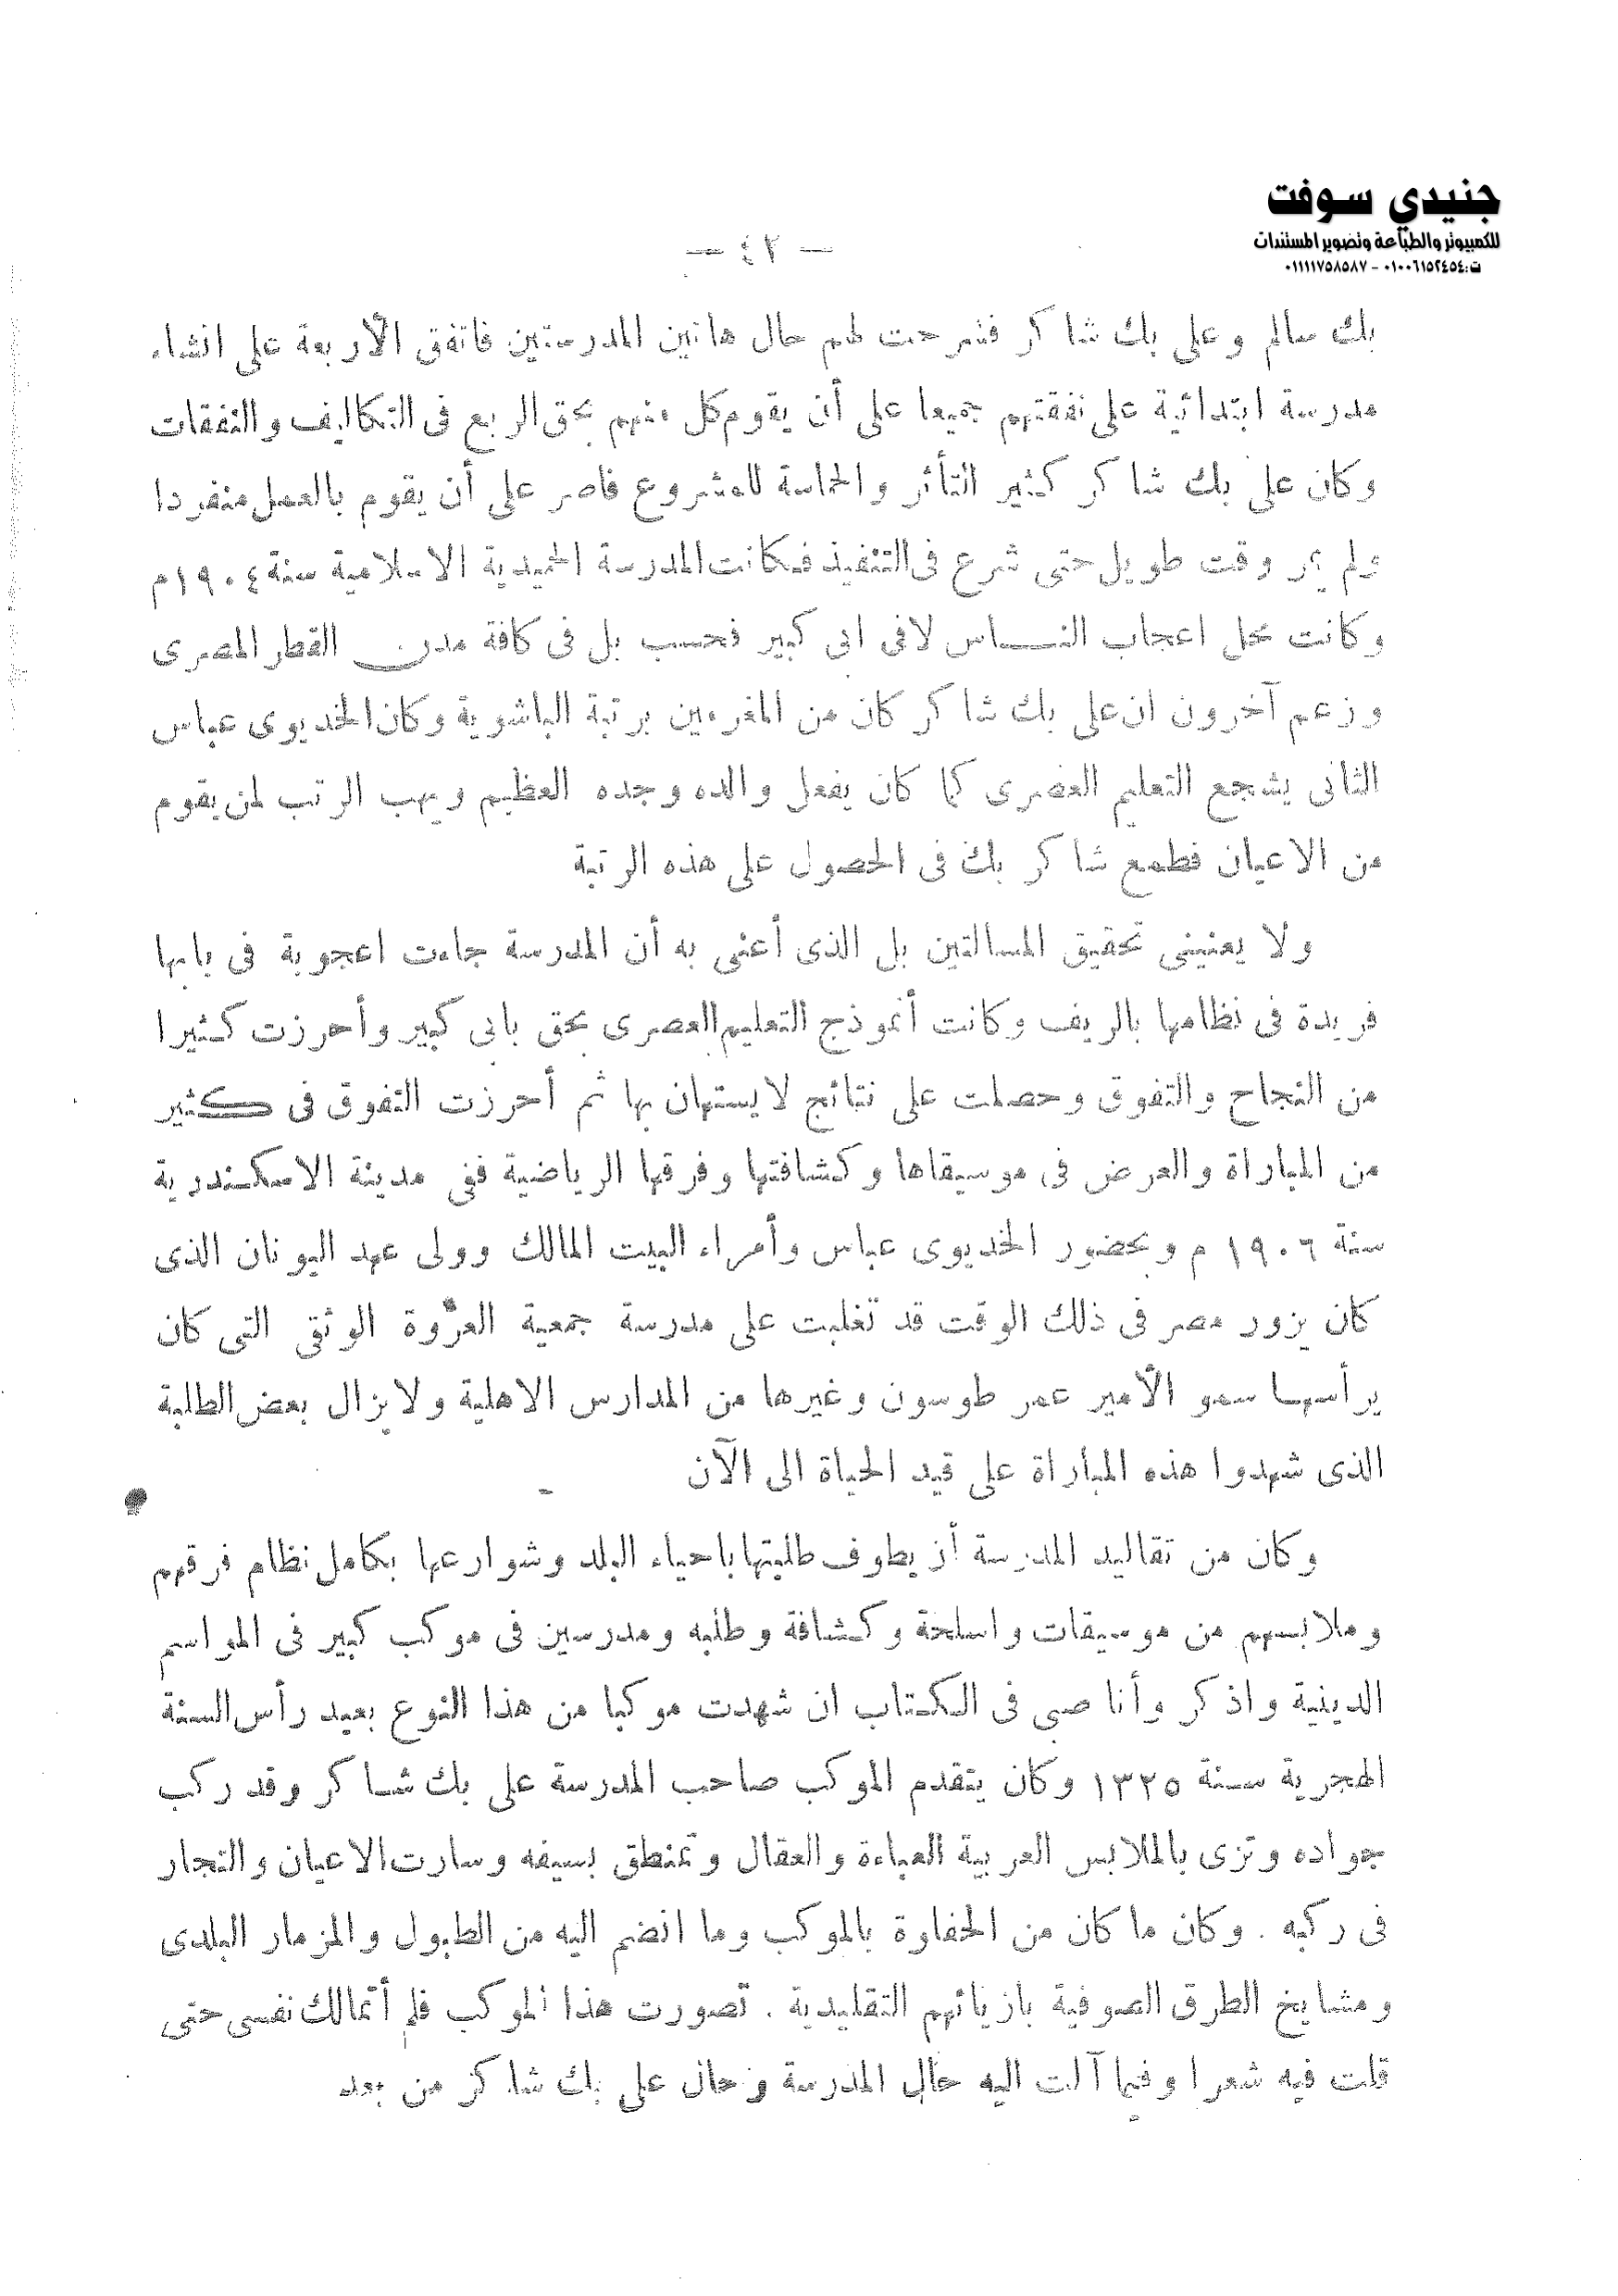 جنيدي سوفت
للكمبيوتر والطباعة وتصوير المستندات
ت: ٠١٠٠٦١٥٢٤٥٤ - ٠١١١١٧٥٨٥٨٧
— ٤٢ —
بك سالم وعلى بك شاكر فشرحت لهم حال هاتين المدرستين فاتفق الأربعة على انشاء
مدرسة ابتدائية على نفقتهم جميعا على أن يقوم كل منهم بحق الربع فى التكاليف والنفقات
وكان على بك شاكر كثير التأثر والحماسة للمشروع فاصر على أن يقوم بالعمل منفردا
ولم يمر وقت طويل حتى شرع فى التنفيذ فكانت المدرسة الحميدية الاسلامية سنة ١٩٠٤م
وكانت محل اعجاب النــاس لافى ابى كبير فحسب بل فى كافة مدن القطر المصرى
وزعم آخرون ان على بك شاكر كان من المغرمين برتبة الباشوية وكان الخديوى عباس
الثانى يشجع التعليم العصرى كما كان يفعل والده وجده العظيم ويهب الرتب لمن يقوم
من الاعيان فطمع شاكر بك فى الحصول على هذه الرتبة
ولا يعنينى تحقيق المسالتين بل الذى أعنى به أن المدرسة جاءت اعجوبة فى بابها
فريدة فى نظامها بالريف وكانت أنموذج التعليم العصرى بحق بابى كبير وأحرزت كثيرا
من النجاح والتفوق وحصلت على نتائج لايستهان بها ثم أحرزت التفوق فى كثير
من المباراة والعرض فى موسيقاها وكشافتها وفرقها الرياضية ففى مدينة الاسكندرية
سنة ١٩٠٦ م وبحضور الخديوى عباس وأمراء البيت المالك وولى عهد اليونان الذى
كان يزور مصر فى ذلك الوقت قد تغلبت على مدرسة جمعية العروة الوثقى التى كان
يرأسها سمو الأمير عمر طوسون وغيرها من المدارس الاهلية ولايزال بعض الطلبة
الذى شهدوا هذه المباراة على قيد الحياة الى الآن
وكان من تقاليد المدرسة أن يطوف طلبتها باحياء البلد وشوارعها بكامل نظام فرقهم
وملابسهم من موسيقات واسلحة وكشافة وطلبه ومدرسين فى موكب كبير فى المواسم
الدينية واذكر وأنا صبى فى الكتاب ان شهدت موكبا من هذا النوع بعيد رأس السنة
الهجرية سنة ١٣٢٥ وكان يتقدم الموكب صاحب المدرسة على بك شاكر وقد ركب
جواده وتزى بالملابس العربية العباءة والعقال وتمنطق بسيفه وسارت الاعيان والتجار
فى ركبه . وكان ما كان من الحفاوة بالموكب وما انضم اليه من الطبول والمزمار البلدى
ومشايخ الطرق الصوفية بازيائهم التقليدية . تصورت هذا الموكب فلم أتمالك نفسى حتى
قلت فيه شعرا وفيما آلت اليه حال المدرسة وحال على بك شاكر من بعد